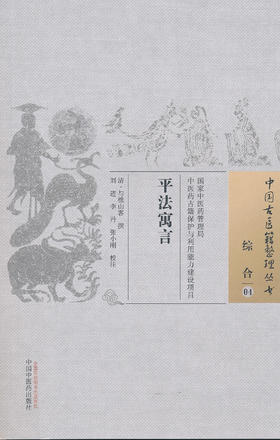 中国古医籍整理丛书
综合
04
国家中医药管理局
中医药古籍保护与利用能力建设项目
平法寓言
清·与樵山客 撰
刘进 李丹 张小刚 校注
中国中医药出版社